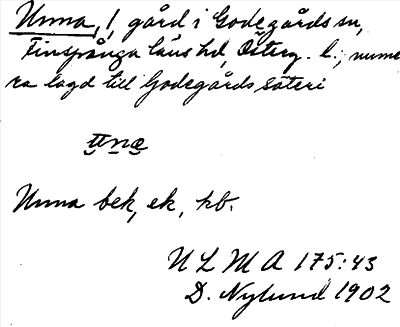 Unna, 1/ gård i Godegårds sn,
Finspånga läns hd, Österg. l.; nume
ra lagd till Godegårds säteri
unæ
Unna bek, ek, kb.
ULMA 175:43
D. Nylund 1902